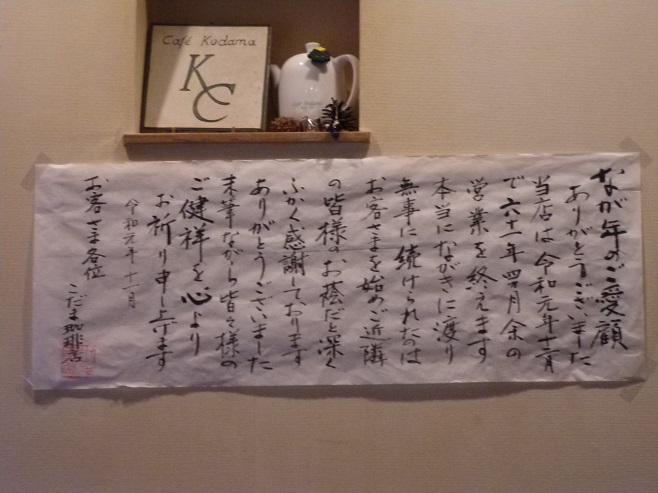 Café Kodama
KC
なが年のご愛顧
ありがとうございました
当店は令和元年十二月
で六十一年四ヶ月余の
営業を終えます
本当にながきに渡り
無事に続けられたのは
お客さまを始めご近隣
の皆様のお蔭だと深く
ふかく感謝しております
ありがとうございました
末筆ながら皆々様の
ご健祥を心より
お祈り申し上げます
令和元年十一月
お客さま各位
こだま珈琲店